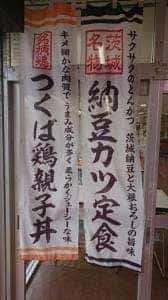 サクサクのとんかつ、茨城納豆と大根おろしの旨味
茨城名物
納豆カツ定食
キメ細かな肉質で、うまみ成分が多く柔らかくジューシーな味
銘柄鶏
つくば鶏親子丼